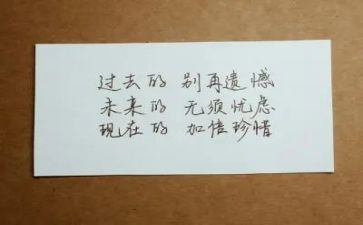 过去的 别再遗憾
未来的 无须忧虑
现在的 加倍珍惜